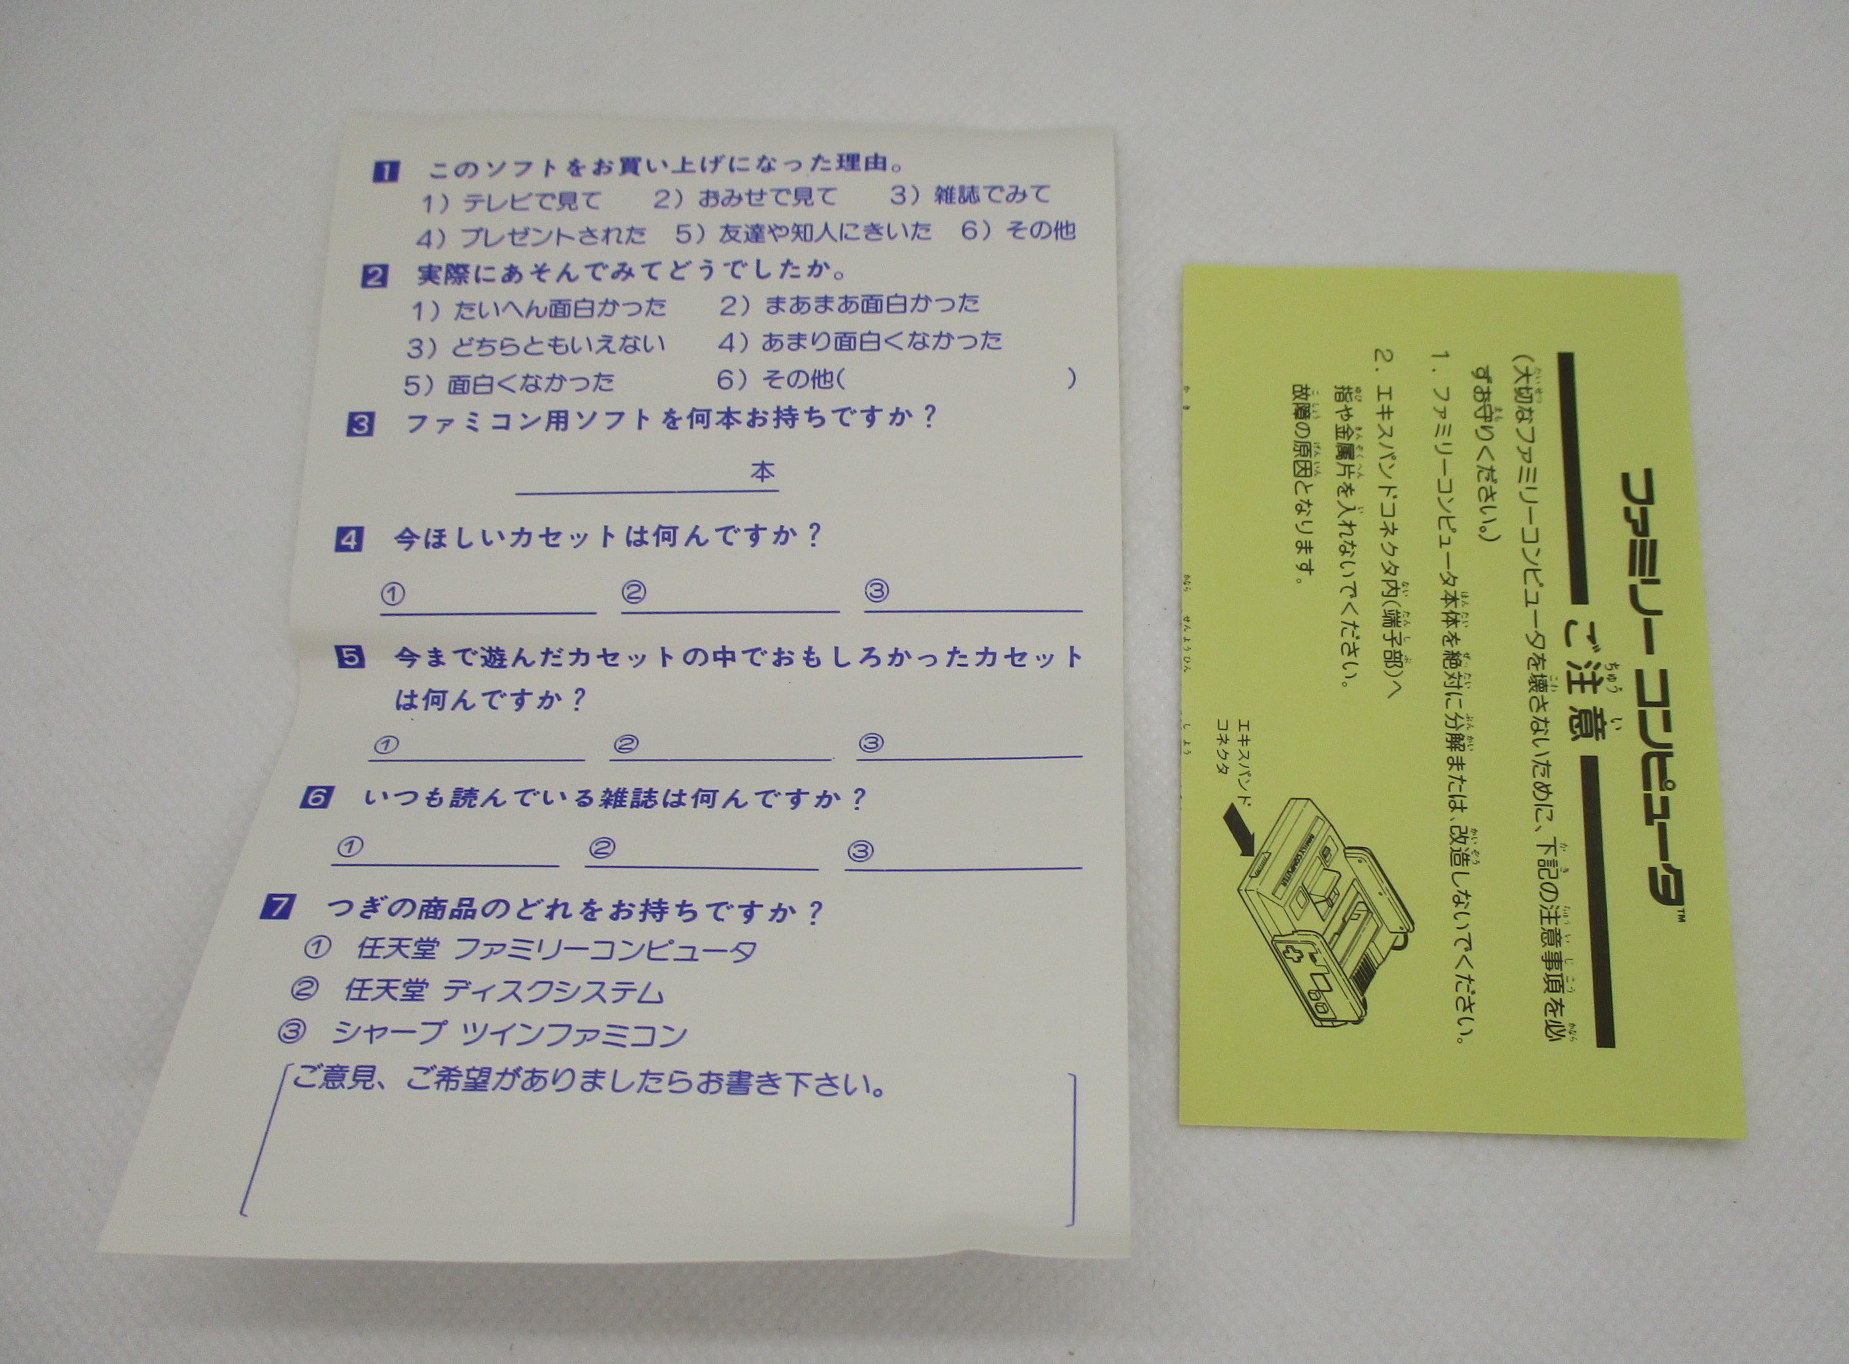 1 このソフトをお買い上げになった理由。
1）テレビで見て 2）おみせで見て 3）雑誌でみて
4）プレゼントされた 5）友達や知人にきいた 6）その他
2 実際にあそんでみてどうでしたか。
1）たいへん面白かった 2）まあまあ面白かった
3）どちらともいえない 4）あまり面白くなかった
5）面白くなかった 6）その他( )
3 ファミコン用ソフトを何本お持ちですか？
本
4 今ほしいカセットは何んですか？
① ② ③
5 今まで遊んだカセットの中でおもしろかったカセット
は何んですか？
① ② ③
6 いつも読んでいる雑誌は何んですか？
① ② ③
7 つぎの商品のどれをお持ちですか？
① 任天堂 ファミリーコンピュータ
② 任天堂 ディスクシステム
③ シャープ ツインファミコン
ご意見、ご希望がありましたらお書き下さい。
ファミリー コンピュータ™
ご注意
(大切なファミリーコンピュータを壊さないために、下記の注意事項を必
ずお守りください。)
1. ファミリーコンピュータ本体を絶対に分解または、改造しないでください。
2. エキスパンドコネクタ内(端子部)へ
指や金属片を入れないでください。
故障の原因となります。
エキスパンド
コネクタ
FAMILY COMPUTER